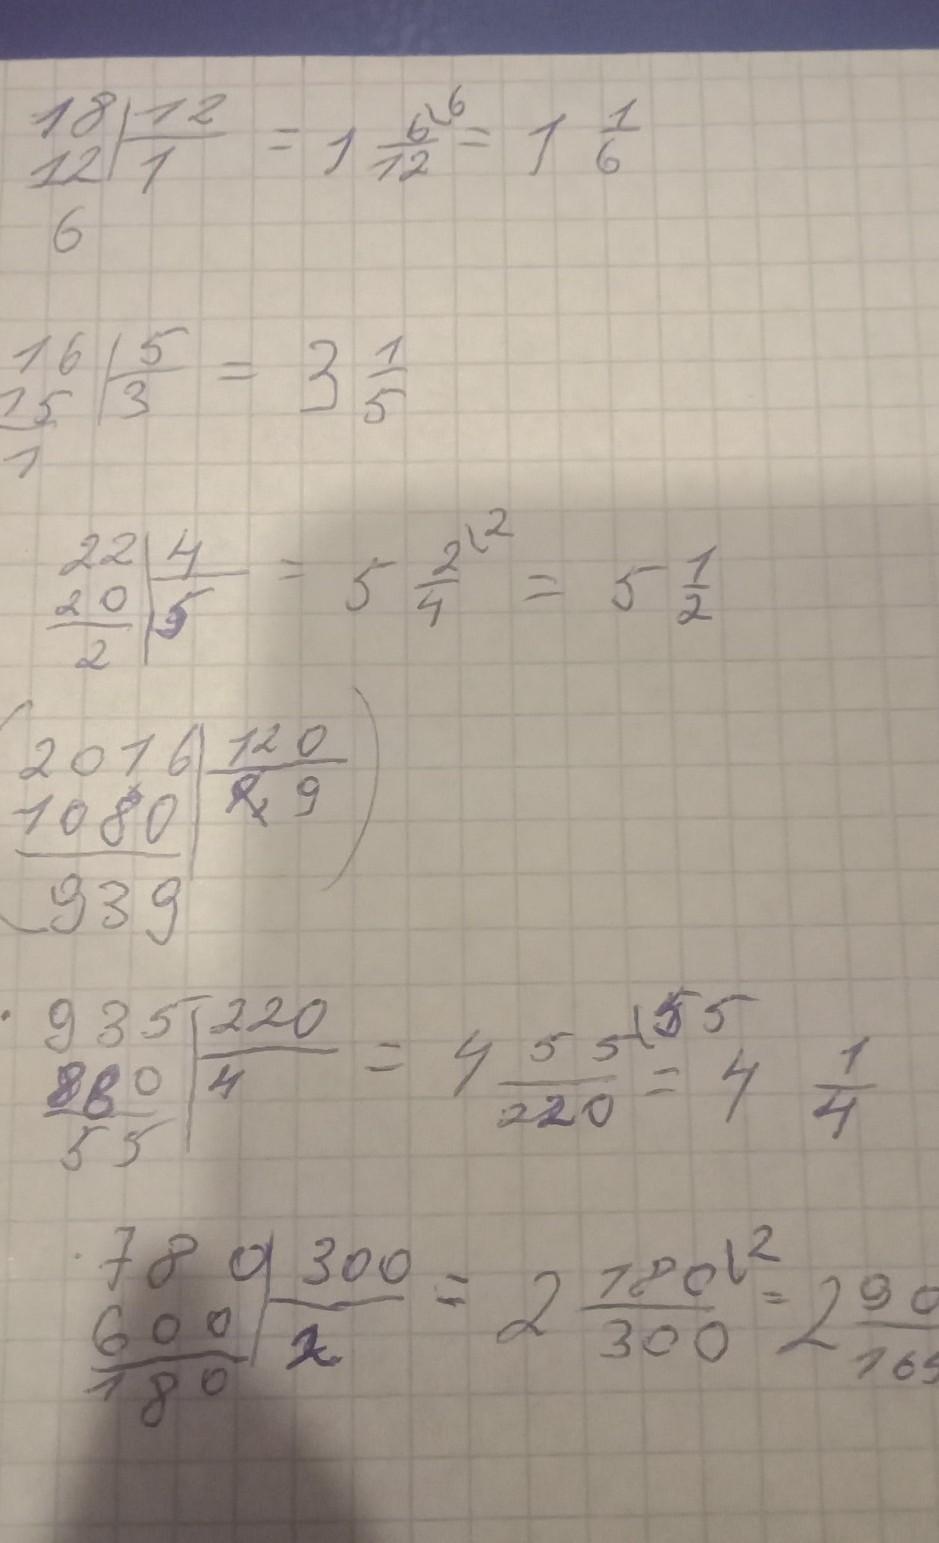 18 | 12 = 1 6/12 (6 = 1 1/6
12 | 1
6
16 | 5 = 3 1/5
15 | 3
1
22 | 4 = 5 2/4 (2 = 5 1/2
20 | 5
2
(2016 | 120)
1080 | 9
939
935 | 220 = 4 55/220 (55 = 4 1/4
880 | 4
55
780 | 300 = 2 180/300 (2 = 2 90/
600 | 2
180